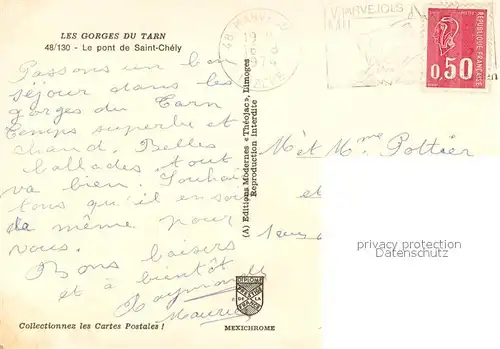 LES GORGES DU TARN
48/130 - Le pont de Saint-Chély
Passons un bon
séjour dans les
gorges du Tarn
Temps superbe et
chaud. Belles
ballades tout
va bien. Souhai
tons qu'il en soit
de même pour
vous.
Bons baisers
et à bientôt
Raymonde
Maurice
Collectionnez les Cartes Postales !
(A) Editions Modernes «Théojac», Limoges
Reproduction Interdite
DIPLOME
PRESTIGE
DE LA
FRANCE
MEXICHROME
48 MARVEJOLS
1974
LOZERE
MARVEJOLS
REPUBLIQUE FRANÇAISE
0,50
M et Mme Pottier
et
privacy protection
Datenschutz